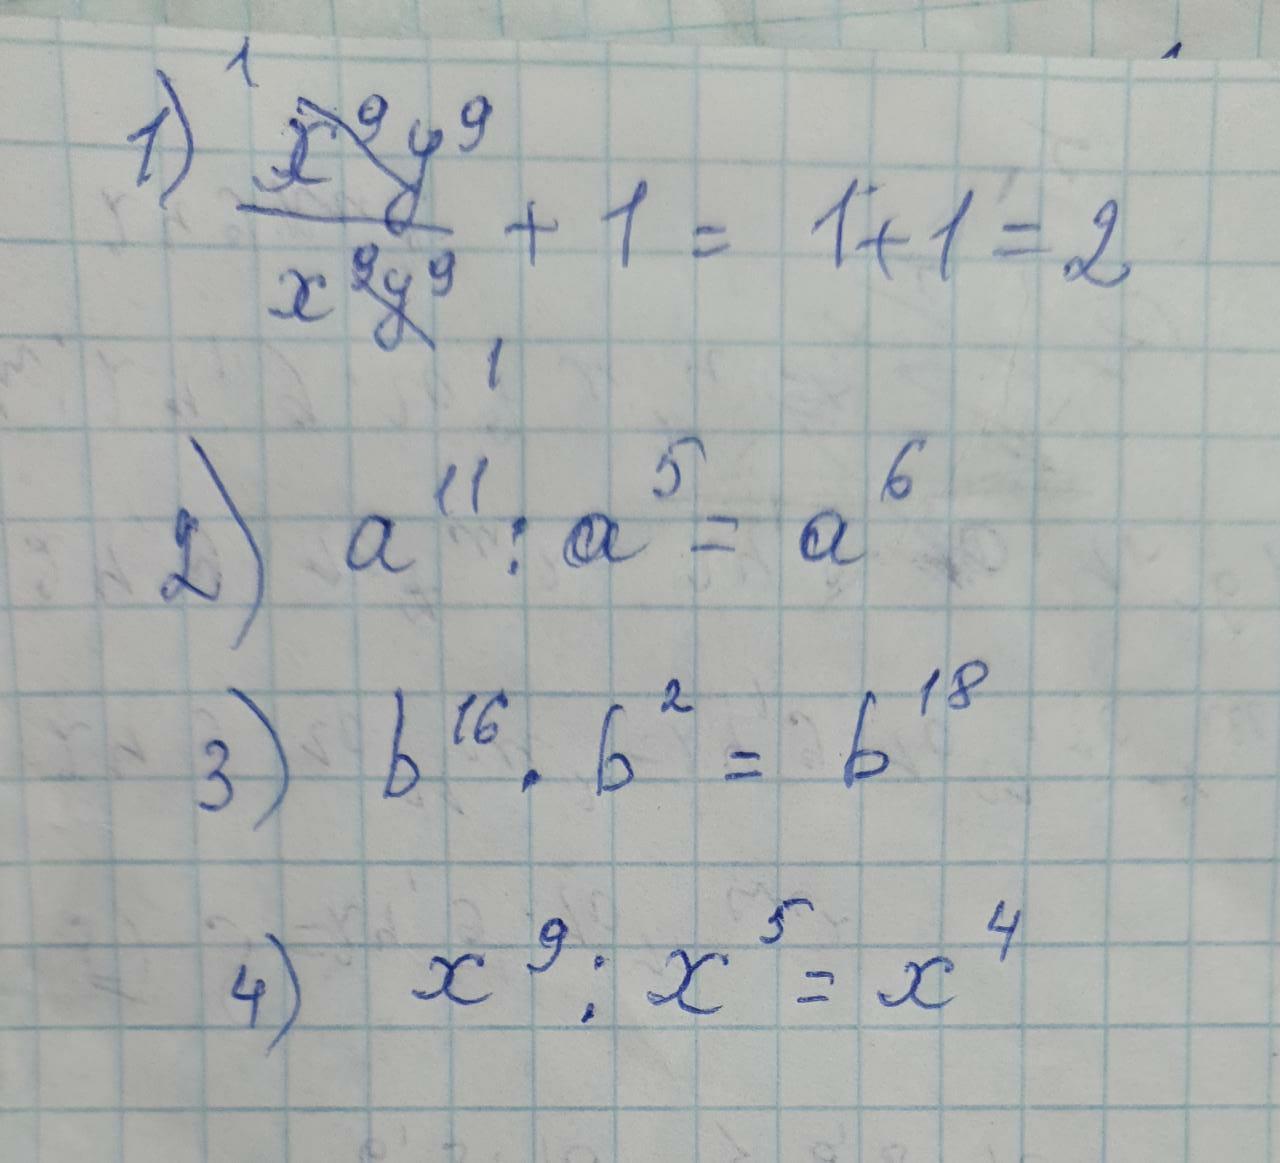 1) x⁹y⁹/x⁹y⁹ + 1 = 1+1=2
2) a¹¹ : a⁵ = a⁶
3) b¹⁶ · b² = b¹⁸
4) x⁹ : x⁵ = x⁴